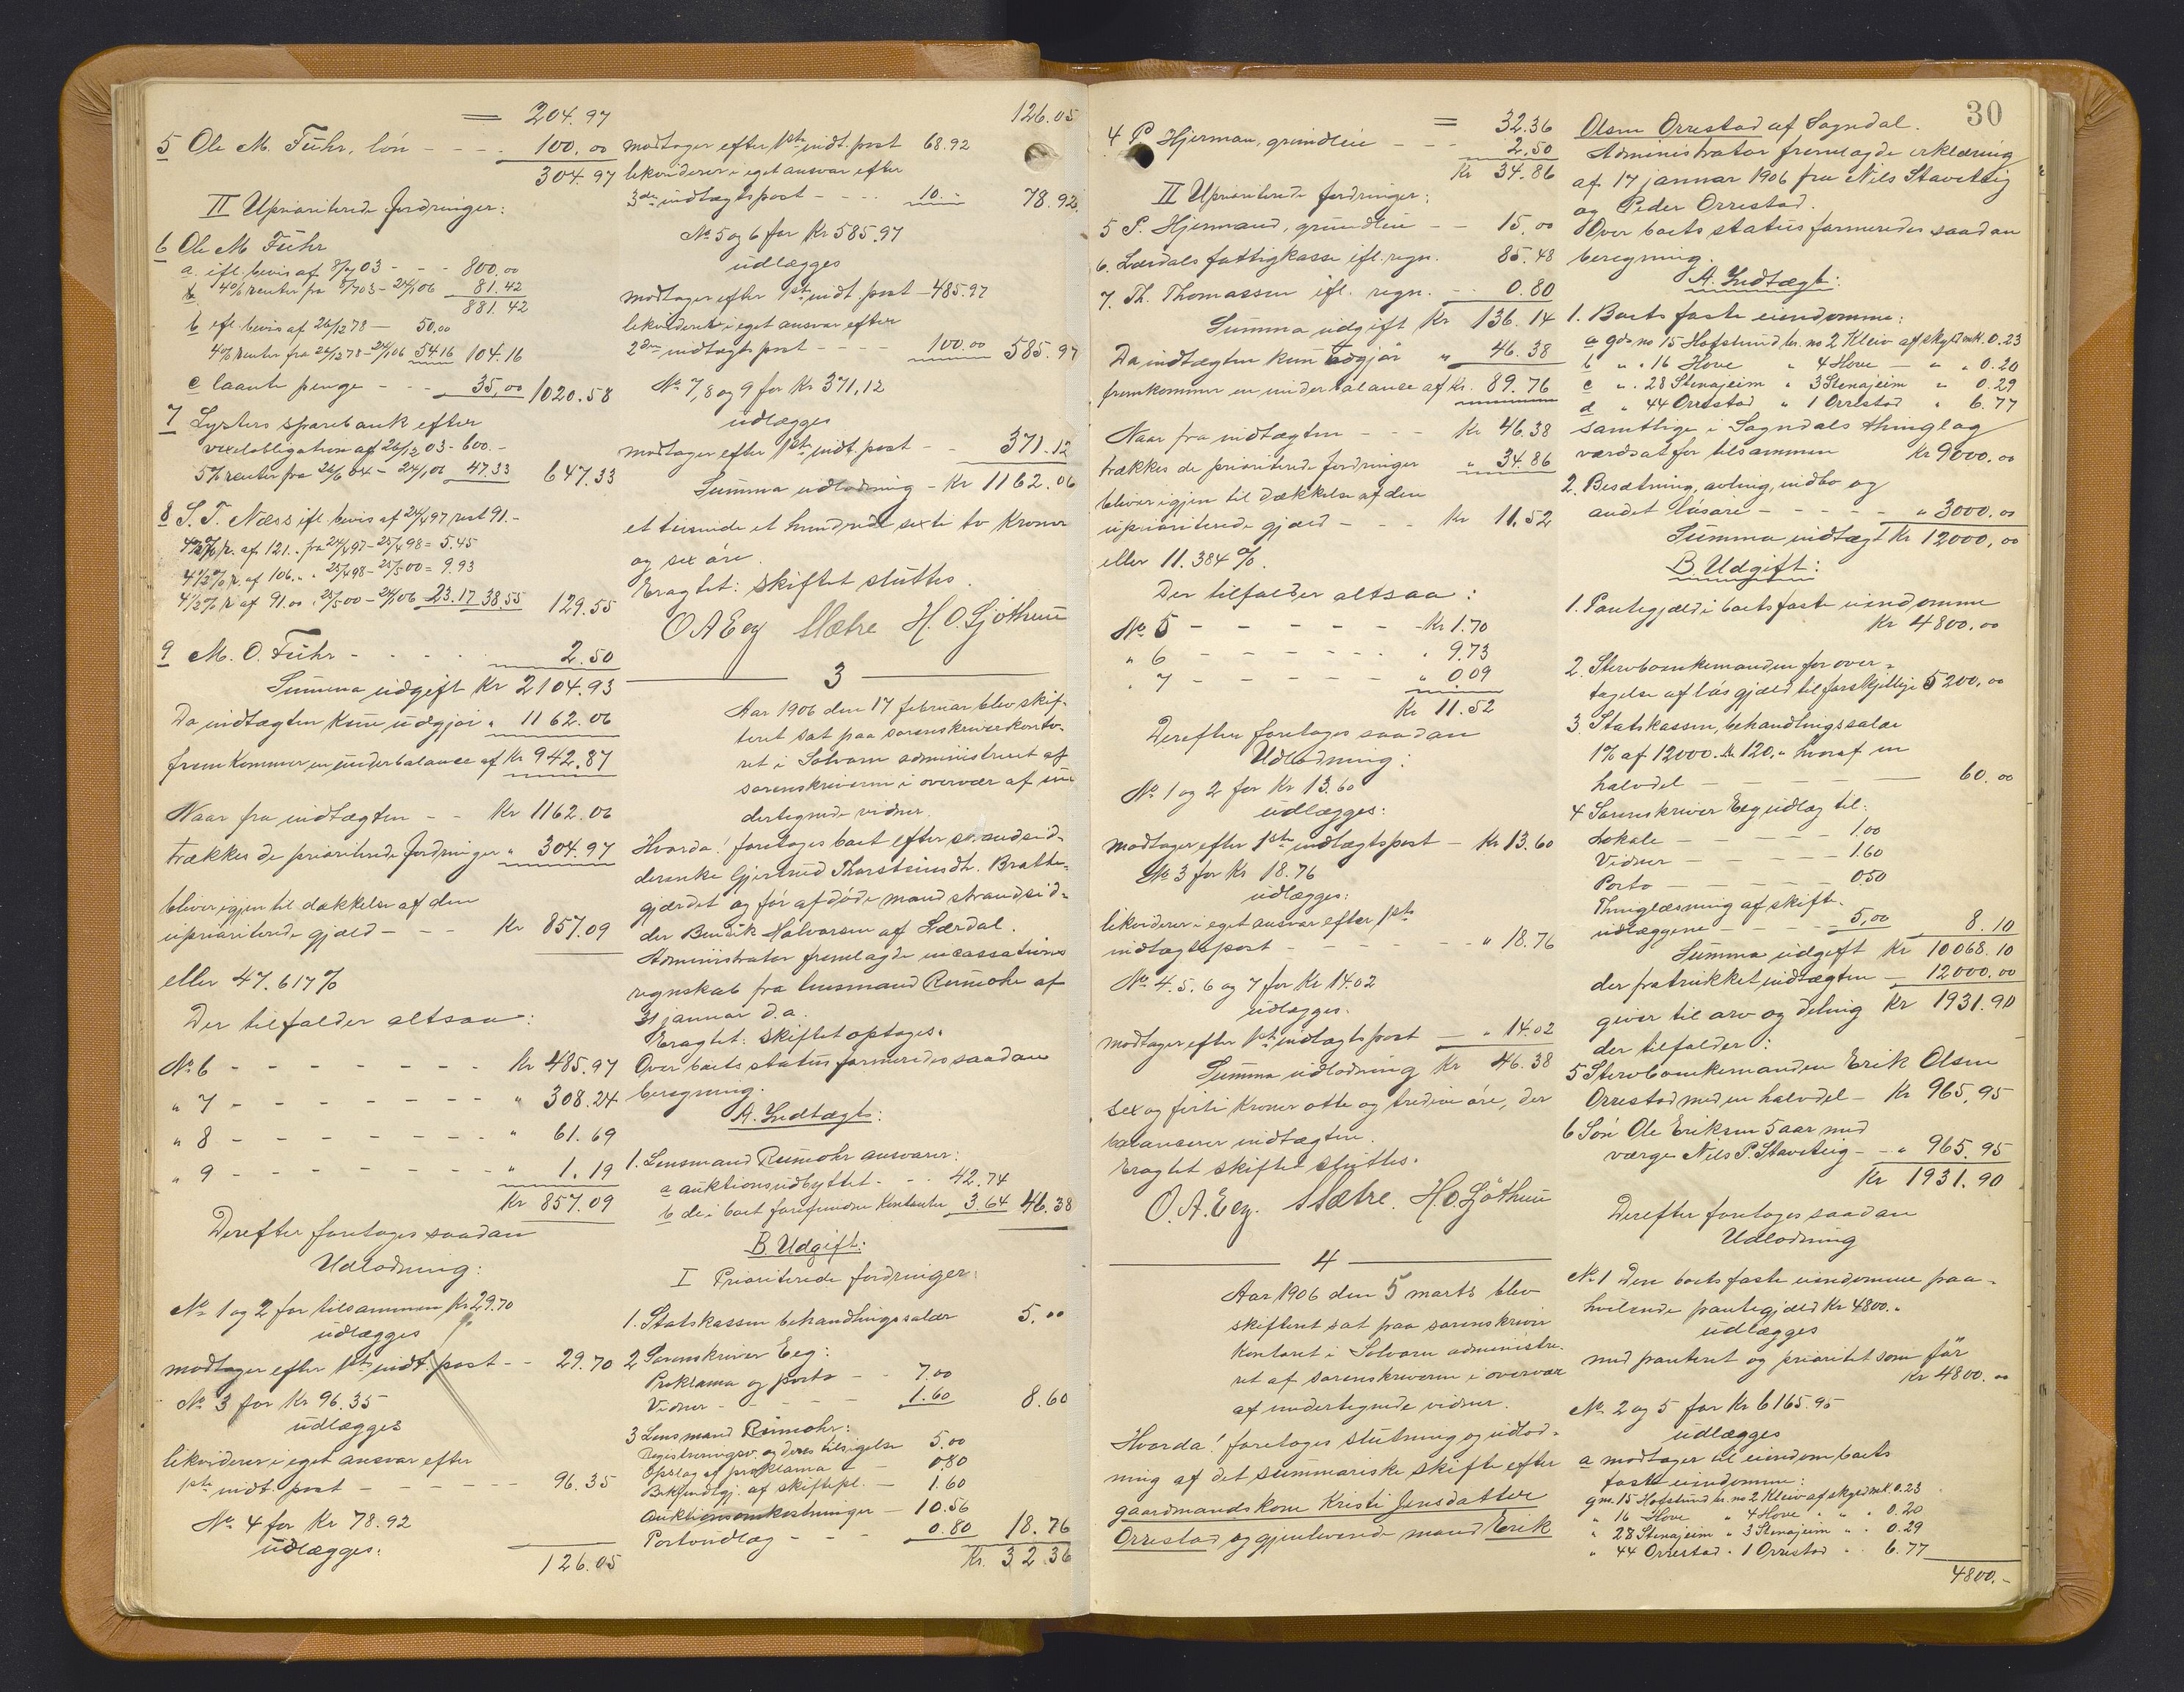 = 204.97
5 Ole M. Führ, lön - - - 100.00
304.97
II Uprioriterede fordringer:
6 Ole M Führ
a. ifl. bevis af 8/7 03 - - - 800.00
4% renter fra 8/7 03 - 24/1 06 81.42
881.42
b ifl. bevis af 26/2 78 - 50.00
4% renter fra 26/2 78 - 24/1 06 54.16 104.16
c laante penge - - - 35,00 1020.58
7 Lysters sparebank efter
vexelobligation af 26/2 03 - 600.-
5% renter fra 26/6 04 - 24/1 06 47.33 647.33
8 S. T. Næss ifl. bevis af 24/4 97 rest 91.-
4½% r. af 121.- fra 24/4 97 - 25/4 98 = 5.45
4½% r. af 106.- " 25/4 98 - 25/5 00 = 9.93
4½% r af 91.00 " 25/5 00 - 24/1 06 23.17 38.55 129.55
9 M. O. Führ - - - - 2.50
Summa udgift Kr 2104.93
Da indtægten kun udgjør " 1162.06
fremkommer en underbalance af Kr 942.87
Naar fra indtægten - - Kr 1162.06
trækkes de prioriterede fordringer " 304.97
bliver igjen til dækkelse af den
uprioriterede gjæld - - - Kr 857.09
eller 47.617%
Der tilfalder altsaa:
No 6 - - - - - - - Kr 485.97
" 7 - - - - - - - " 308.24
" 8 - - - - - - - " 61.69
" 9 - - - - - - - " 1.19
Kr 857.09
Derefter foretoges saadan
Udlodning:
No 1 og 2 for tilsammen Kr 29.70
udlægges
modtager efter 1ste indt. post - - 29.70
No 3 for Kr 96.35
udlægges
likviderer i eget ansvar efter
1ste indt. post - - - - - 96.35
No 4 for Kr 78.92
udlægges:
126.05
126.05
modtager efter 1ste indt. post 68.92
likviderer i eget ansvar efter
3die indtægtspost - - - 10.- 78.92
No 5 og 6 for Kr 585.97
udlægges
modtager efter 1ste indt. post - 485.97
likviderer i eget ansvar efter
2den indtægtspost - - - 100.00 585.97
No. 7, 8 og 9 for Kr 371,12
udlægges
modtager efter 1ste indt. post - 371.12
Summa udlodning - Kr 1162.06
et tusinde et hundrede sexti to kroner
og sex øre.
Eragtet: skiftet sluttes.
O A Eeg Sletre H. O. Sjöthun
3
Aar 1906 den 17 februar blev skif-
teret sat paa sorenskriverkonto-
ret i Solvorn administreret af
sorenskriveren i overvær af un
dertegnede vidner.
Hvorda! foretoges boet efter strandsid-
derenke Gjertrud Thorsteinsdt. Bratte-
gjærdet og før afdøde mand strandsid-
der Bendik Halvorsen af Lærdal.
Administrator fremlagde incassations
regnskab fra lensmand Rumohr af
31 januar d.a.
Eragtet: Skiftet optoges.
Over boets status formeredes saadan
beregning.
A. Indtægt:
1. Lensmand Rumohr ansvarer:
a auktionsudbyttet - - - 42.74
b de i boet forefundne kontanter 3.64 46.38
B. Udgift:
I Prioriterede fordringer:
1. Statskassen behandlingssalær 5.00
2 Sorenskriver Eeg:
Proklama og porto - - 7.00
Vidner - - - - 1.60 8.60
3 Lensmand Rumohr:
Registreringsv. og deres tilsigelse 5.00
Opslag af proklama - - 0.80
Bekjendtgj. af skiftepl. - 1.60
Auktionsomkostninger - 10.56
Portoudlæg - - - 0.80 18.76
Kr. 32.36
30
= 32.36
4 P. Hjerman, grundleie - - - 2.50
Kr 34.86
II Uprioriterede fordringer:
5 P. Hjermand, grundleie - - 15.00
6. Lærdals fattigkasse ifl. regn. 85.48
7. Th. Thomassen ifl. regn. - - 0.80
Summa udgift Kr 136.14
Da indtægten kun udgjør " 46.38
fremkommer en underbalance af Kr. 89.76
Naar fra indtægten - - - Kr 46.38
trækkes de prioriterede fordringer " 34.86
bliver igjen til dækkelse af den
uprioriterede gjæld - - - Kr 11.52
eller 11.384%.
Der tilfalder altsaa:
No. 5 - - - - - - Kr 1.70
" 6 - - - - - - " 9.73
" 7 - - - - - - " 0.09
Kr 11.52
Derefter foretoges saadan
Udlodning:
No 1 og 2 for Kr 13.60
udlægges:
modtager efter 1ste indtægtspost - Kr 13.60
No 3 for Kr 18.76
udlægges:
likviderer i eget ansvar efter 1ste
indtægtspost - - - - - - " 18.76
No. 4. 5. 6 og 7 for Kr 14.02
udlægges.
modtager efter 1ste indtægtspost - " 14.02
Summa udlodning Kr 46.38
sex og firti kroner otte og tredive øre, der
balancerer indtægten.
Eragtet skiftet sluttes.
O. A. Eeg. Sletre. H. O. Sjöthun
4
Aar 1906 den 5 marts blev
skifteret sat paa sorenskriver
kontoret i Solvorn administre-
ret af sorenskriveren i overvær
af undertegnede vidner.
Hvorda! foretoges slutning og udlod-
ning af det summariske skifte efter
gaardmandskone Kristi Jensdatter
Orrestad og gjenlevende mand Erik
Olsen Orrestad af Sogndal.
Administrator fremlagde erklæring
af 17 januar 1906 fra Nils Staveteig
og Peder Orrestad.
Over boets status formeredes saadan
beregning.
A. Indtægt:
1. Boets faste eiendomme:
a gds no 15 Hofslund br. no 2 Kleiv af skyld mk. 0.23
b " " 16 Hove " 4 Hove - " " 0.20
c " " 28 Stenajeim " 3 Stenajeim " 0.29
d " 44 Orrestad " 1 Orrestad " 6.77
samtlige i Sogndals thinglag
værdsat for tilsammen Kr 9000.00
2. Besætning, avling, indbo og
andet løsøre - - - - - " 3000.00
Summa indtægt Kr 12000.00
B. Udgift:
1. Pantegjæld i boets faste eiendomme
Kr 4800.00
2 Stervboenkemanden for over-
tagelse af løs gjæld til forskjellige 5200.00
3. Statskassen, behandlingssalær
1% af 12000.- Kr 120.- hvoraf en
halvdel - - - - 60.00
4 Sorenskriver Eeg udlæg til:
Lokale - - - - - 1.00
Vidner - - - - - 1.60
Porto - - - - - 0.50
Thinglæsning af skifte-
udlæggene - - - - 5,00 8.10
Summa udgift Kr 10068.10
der fratrukket indtægten - 12000.00
giver til arv og deling Kr 1931.90
der tilfalder:
5 Stervboenkemanden Erik Olsen
Orrestad med en halvdel - Kr 965.95
6 Søn Ole Eriksen 5 aar med
værge Nils P. Staveteig - - " 965.95
Kr 1931.90
Derefter foretoges saadan
Udlodning
No 1 Den boets faste eiendomme paa-
hvilende pantegjæld Kr 4800.-
udlægges
med panteret og prioritet som før
Kr 4800.00
No 2 og 5 for Kr 6165.95
udlægges
a modtager til eiendom boets
faste eiendomme:
g no. 15 Hofslund br. no 2 Kleiv af skyld mk. 0.23
" 16 Hove " 4 Hove " " 0.20
" 28 Stenajeim " 3 Stenajeim " " 0.29
" 44 Orrestad " 1 Orrestad " " 6.77
4800.-